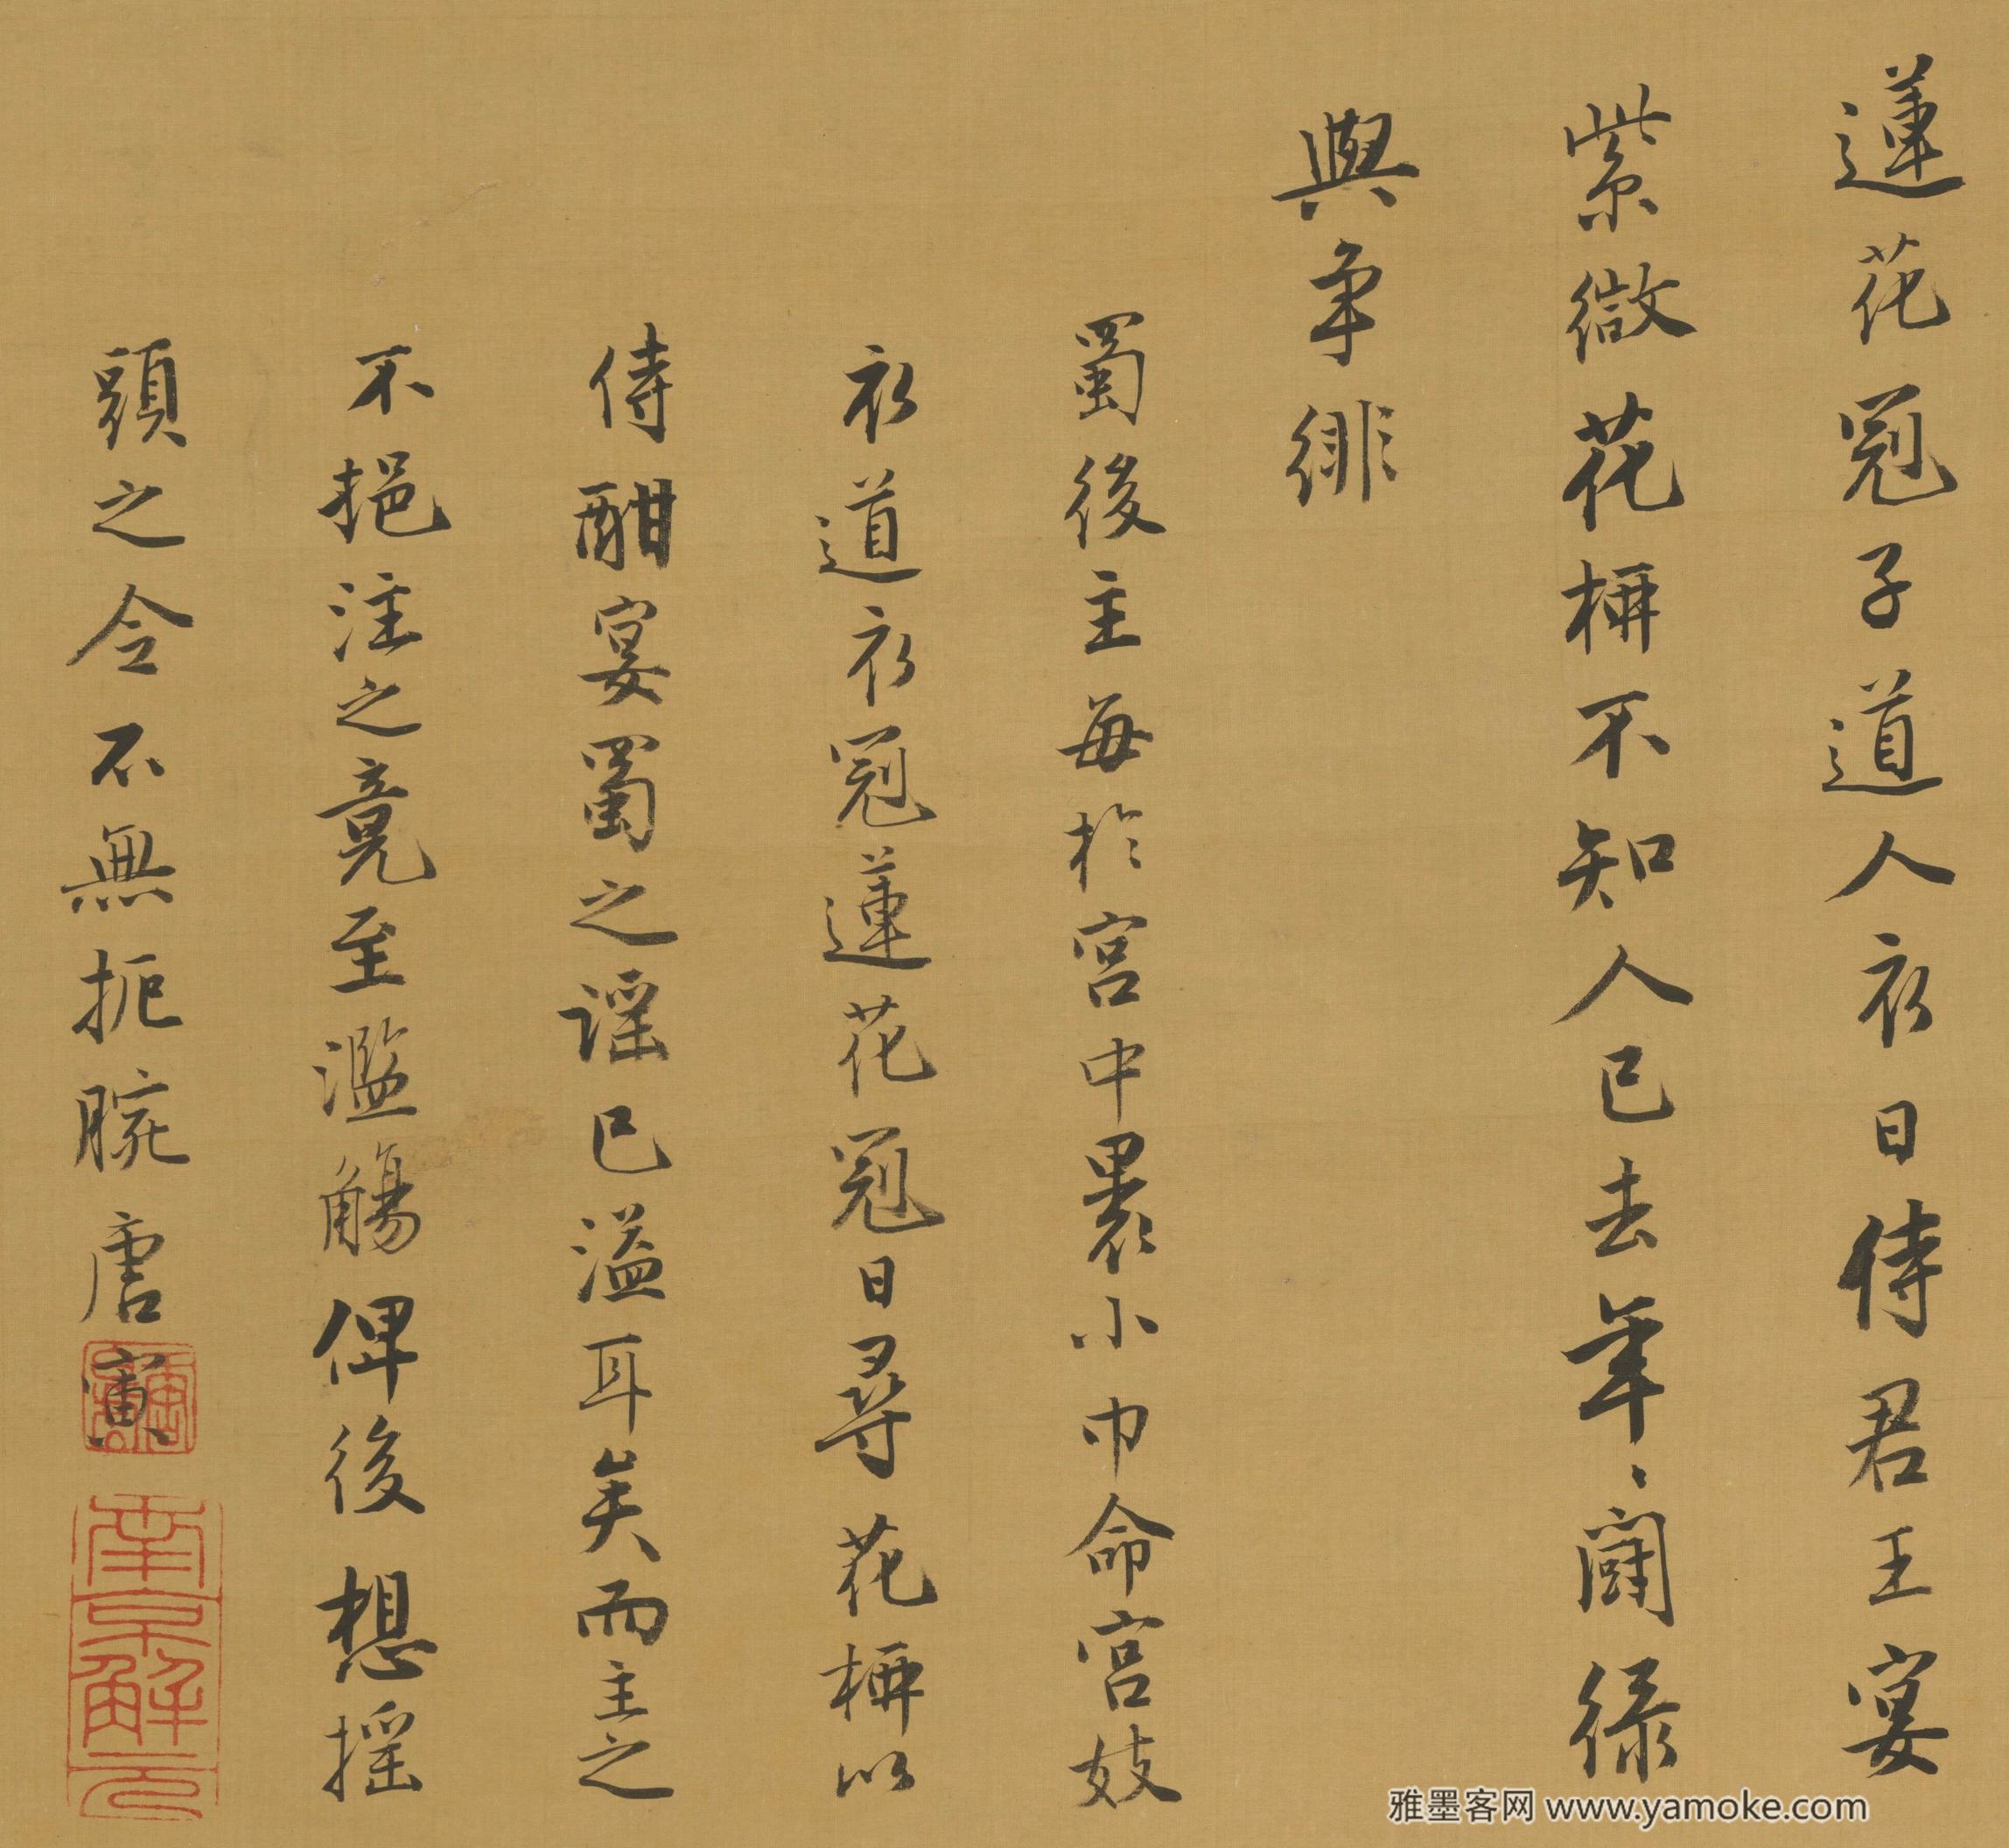 蓮花冠子道人衣日侍君王宴
紫微花柳不知人已去年〻鬪綠
與爭緋
蜀後主每於宮中裹小巾命宮妓
衣道衣冠蓮花冠日尋花柳以
侍酣宴蜀之謠已溢耳矣而主之
不挹注之竟至濫觴俾後想摇
頭之令不無扼腕唐寅
唐寅
南京解元
雅墨客网 www.yamoke.com